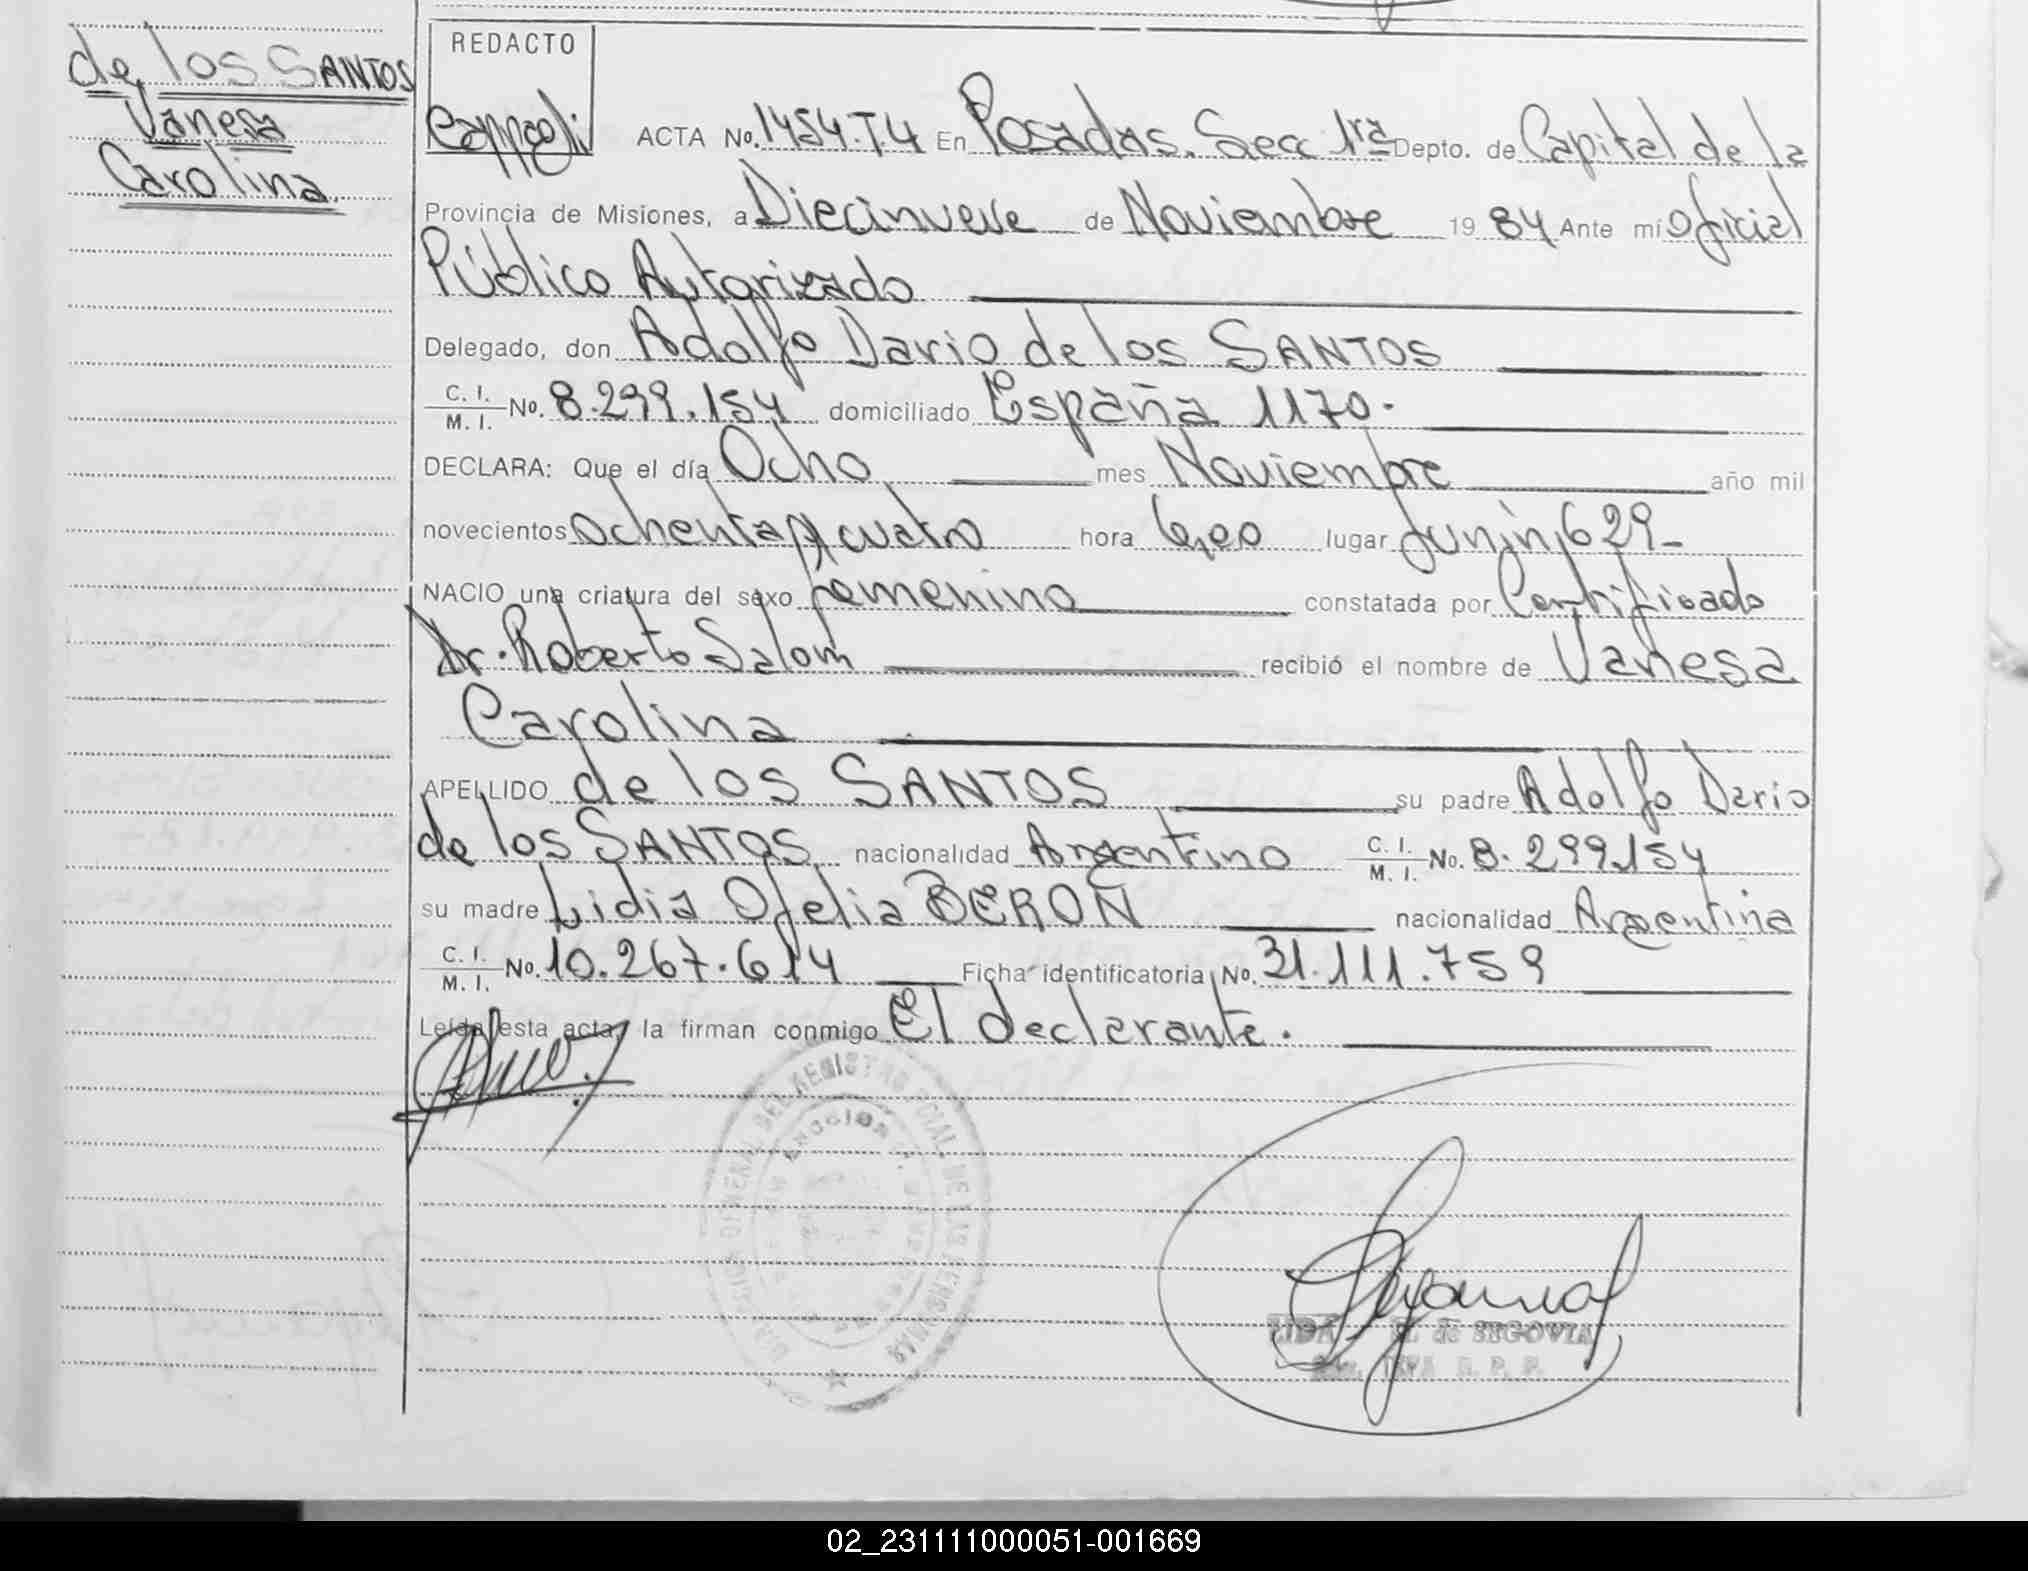 de los SANTOS
Vanesa
Carolina
REDACTO
ACTA No. 1454.T.4 En Posadas. Secc 1ra Depto. de Capital de la
Provincia de Misiones, a Diecinueve de Noviembre 1984 Ante mi Oficial
Público Autorizado
Delegado, don Adolfo Dario de los SANTOS
C. I.
M. I. No. 8.299.154 domiciliado España 1170.
DECLARA: Que el día Ocho mes Noviembre año mil
novecientos ochenta y cuatro hora lugar Junin 629-
NACIO una criatura del sexo femenino constatada por Certificado
Dr. Roberto Salom recibió el nombre de Vanesa
Carolina
APELLIDO de los SANTOS su padre Adolfo Dario
de los SANTOS nacionalidad Argentino C. I.
M. I. No. 8.299.154
su madre Lidia Ofelia BERON nacionalidad Argentina
C. I.
M. I. No. 10.267.614 Ficha identificatoria No. 31.111.759
Leída esta acta, la firman conmigo El declarante.
LIDA de SEGOVIA
02_231111000051-001669